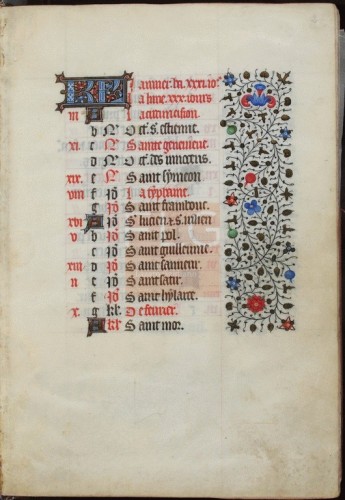 KL Januier. ha. xxxi. io.
la lune. xxx. iours
iii A La circuncision
b N Oct. s. estienne.
xi. c N Sainte geneuieue.
d N Oct. des innocens.
xix. e N Saint symeon
viii f id La typhaine.
g id Saint franbout.
xvi A id S. lucien & s. iulien
v b id Saint pol.
c id Saint guillerme.
xiii d id Saint sauueur.
ii e id Saint satir.
f id Saint hylaire.
x. g kl. De feurier.
A kl Saint mor.